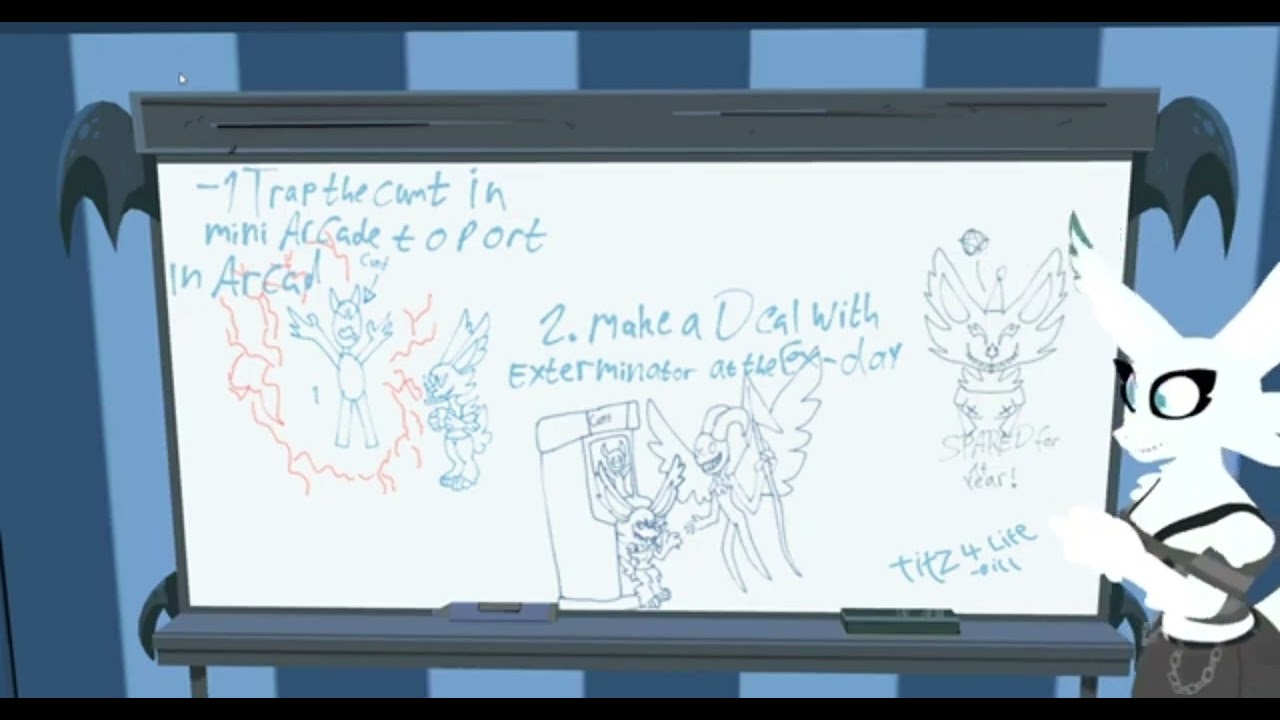 -1 Trap the cunt in
mini Arcade to port
in Arcad
Cunt
1
2. make a Deal with
Exterminator at the Ex-day
Cunt
SPARED for
A Year!
titz 4 Life
-bill